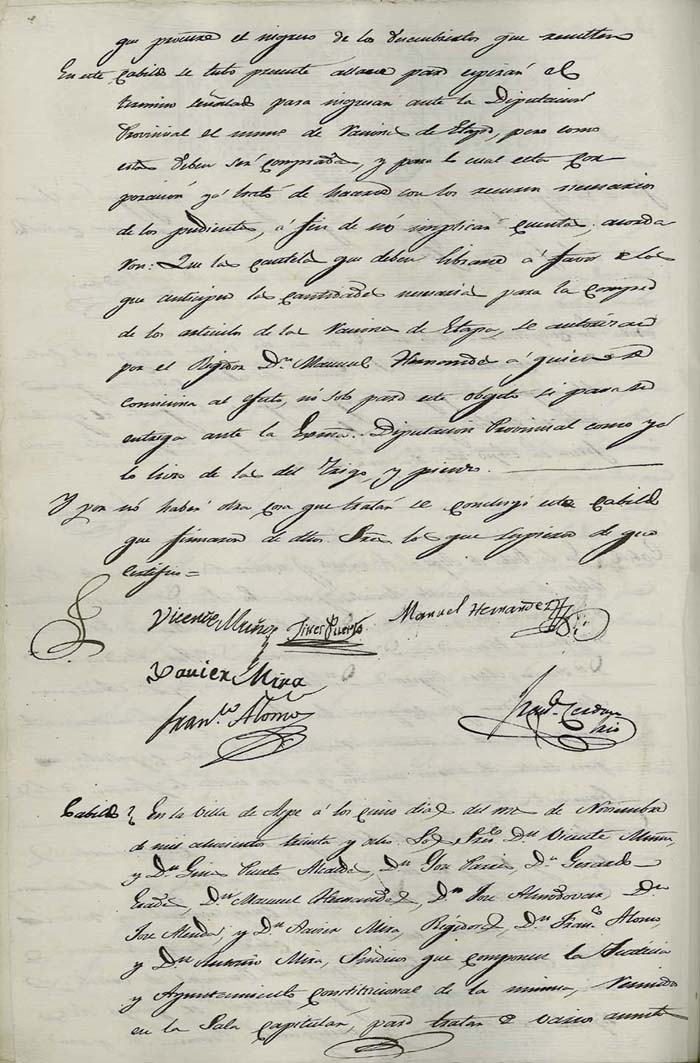 que procure el ingreso de los descubiertos que resulten
En este Cabildo se tubo presente estar para espirar el
termino señalado para ingresar ante la Diputacion
Provincial el numº de Racione de Etapa, pero como
esta deben ser comprada, y para lo cual esta Cor-
poracion yá trató de hacerse con los recurso necesarios
de los pudiente, á fin de nó implicar cuenta acorda
ron: Que las cautela que deben librarse á favor de los
que anticipen las cantidade necesaria para la compra
de los articulos de la Racione de Etapa, se autorizen
por el Regidor Dn. Manuel Hernande á quien se
comisiona al efecto, nó solo para este objeto si para su
entrega ante la Exma. Diputacion Provincial como yá
lo hizo de la del trigo y pienso.
Y por nó haber otra cosa que tratar se concluyó este Cabildo
que firmaron de dhos. Sres. los que supieron de que
Certifico =
Vicente Muñoz Gines Puerto Manuel Hernandez
Xavier Mira
Franco. Alonso Frando. Cerdan
Srio
Cabildo En la Villa de Aspe á los cinco dias del me de Noviembre
de mil ochocientos treinta y ocho. Los Sres. Dn. Vicente Muñoz,
y Dn. Gines Puerto Alcalde, Dn. Jose Dn. Gerardo
Dn. Manuel Hernandez, Dn. Jose Almodovar, Dn.
Jose Mendo y Dn. Xavier Mira, Regidores, Dn. Franco. Alonso,
y Dn. Antonio Mira, Sindicos que componen la Justicia
y Ayuntamiento Constitucional de la misma, Reunidos
en la Sala Capitular, para tratar de varios asunto